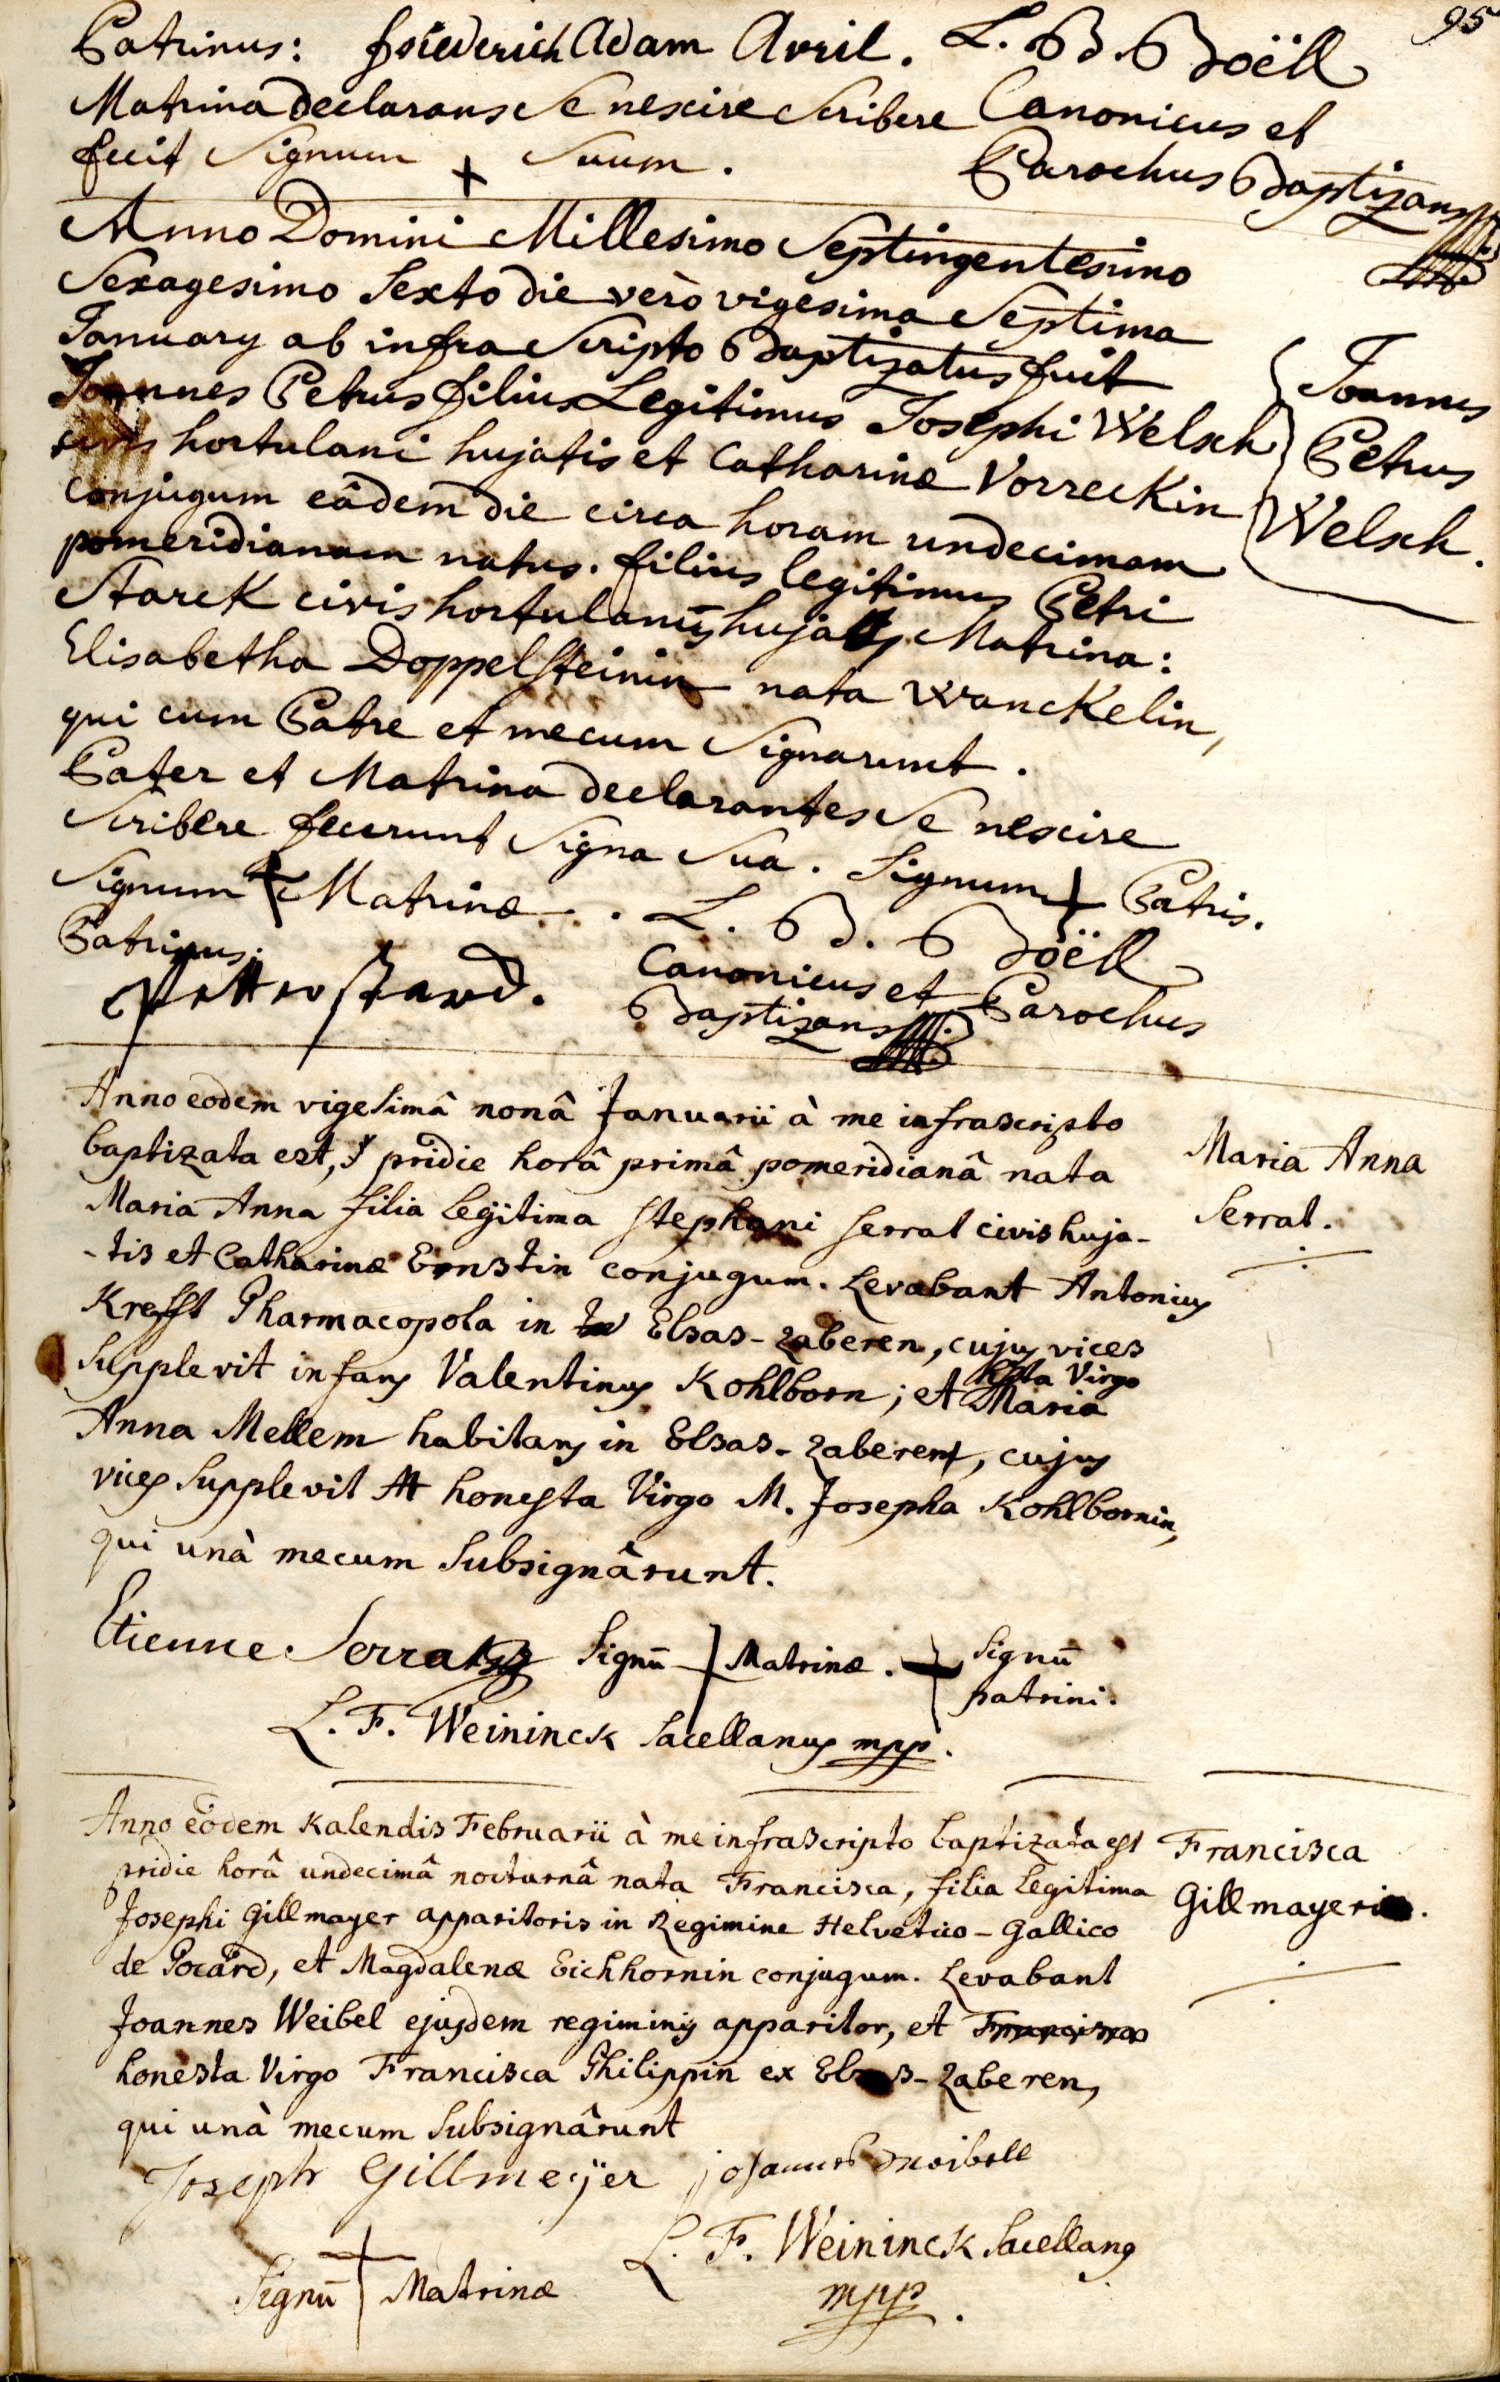 95
Patrinus: friederich Adam Avril.
Matrina declarans Se nescire Scribere
fecit Signum + Suum.
L. B. Boëll
Canonicus et
Parochus Baptizans
Anno Domini Millesimo Septingentesimo
Sexagesimo Sexto die verò vigesima Septima
January ab infra Scripto Baptizatus fuit
Joannes Petrus filius Legitimus Josephi Welsch
civis hortulani hujatis et Catharinæ Vorreckin
Conjugum eâdem die circa horam undecimam
pomeridianam natus. filius legitimus Petri
Starck civis hortulanus hujatis Matrina:
Elisabetha Doppelsteinin nata Wanckelin,
qui cum Patre et mecum Signarunt.
Pater et Matrina declarantes Se nescire
Scribere fecerunt Signa Sua. Signum + Patris.
Signum + Matrinæ.
Patrinus:
L. B. Boëll
Canonicus et Parochus
Baptizans
Joannes
Petrus
Welsch.
Anno eodem vigesimâ nonâ Januarii à me infrascripto
baptizata est, pridie horâ primâ pomeridianâ nata
Maria Anna filia legitima Stephani Serrat civis huja-
-tis et Catharinæ Ernstin conjugum. Levabant Antonius
Krefft Pharmacopola in Elsas-Zaberen, cujus vices
Supplevit infans Valentinus Kohlborn; et hsta Virgo Maria
Anna Mellem habitans in Elsas-Zaberen, cujus
vices Supplevit honesta Virgo M. Josepha Kohlbornin,
qui unà mecum Subsignârunt.
Maria Anna
Serrat.
Etienne Serrat Signū + Matrinæ. + Signū
patrini.
L. F. Weininck Sacellanus mpp.
Anno eodem Kalendis Februarii à me infrascripto baptizata est
pridie horâ undecimâ nocturnâ nata Francisca, filia legitima
Josephi Gillmayer apparitoris in Regimine Helvetico-Gallico
de Pocard, et Magdalenæ Eichhornin conjugum. Levabant
Joannes Weibel ejusdem regiminis apparitor, et Francisca
honesta Virgo Francisca Philippin ex Elsas-Zaberen,
qui unà mecum Subsignârunt
Francisca
Gillmayerin.
Joseph Gillmeÿer johannes Weibell
Signū + Matrinæ
L. F. Weininck Sacellanus
mpp.